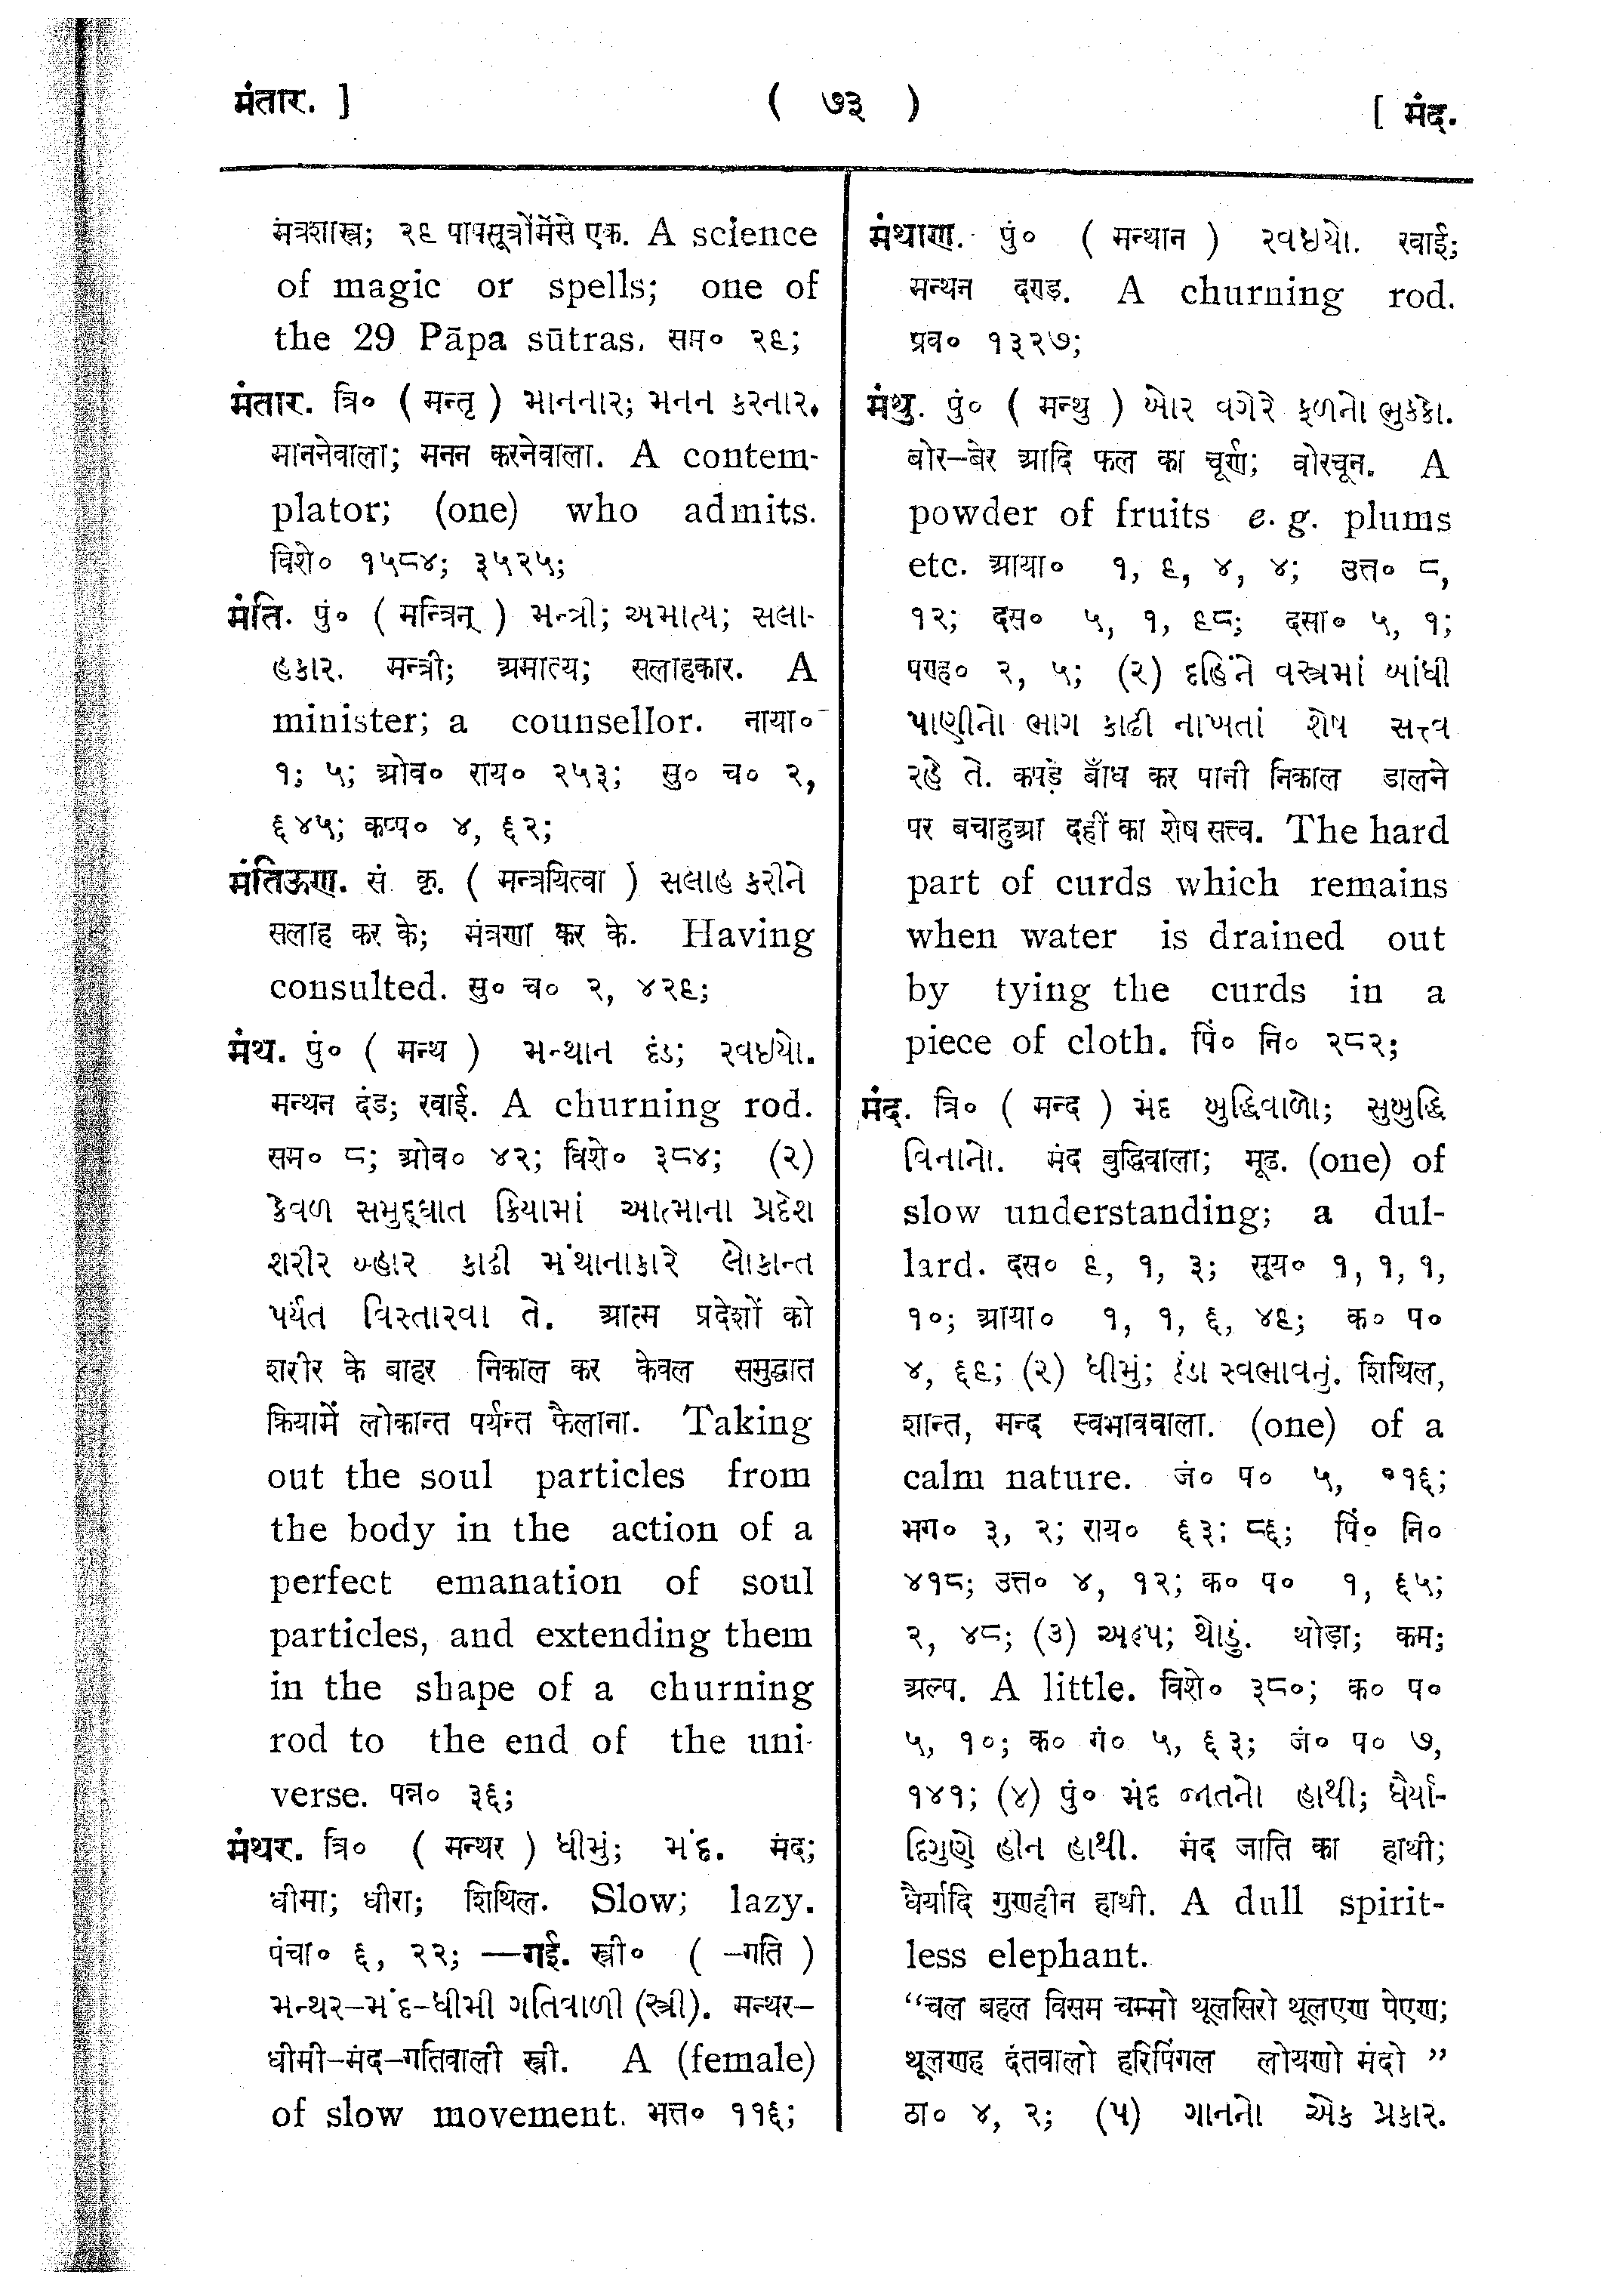 मंतार. ]
( ७३ )
[ मंद.
मंत्रशास्त्र; २९ पापसूत्रोंमेंसे एक. A science
of magic or spells; one of
the 29 Pāpa sūtras. सम० २९;
मंतार. त्रि० ( मन्तृ ) માનનાર; મનન કરનાર.
माननेवाला; मनन करनेवाला. A contem-
plator; (one) who admits.
विशे० १५८४; ३५२५;
मंति. पुं० ( मन्त्रिन् ) મન્ત્રી; અમાત્ય; સલા-
હકાર. मन्त्री; अमात्य; सलाहकार. A
minister; a counsellor. नाया०
१; ५; ओव० राय० २५३; सु० च० २,
६४५; कप्प० ४, ६२;
मंतिऊण. सं. कृ. ( मन्त्रयित्वा ) સલાહ કરીને
सलाह कर के; मंत्रणा कर के. Having
consulted. सु० च० २, ४२९;
मंथ. पुं० ( मन्थ ) મન્થાન દંડ; રવઇયો.
मन्थन दंड; रवाई. A churning rod.
सम० ८; ओव० ४२; विशे० ३८४; (२)
કેવળ સમુદ્ઘાત ક્રિયામાં આત્માના પ્રદેશ
શરીર બ્હાર કાઢી મંથાનાકારે લોકાન્ત
પર્યંત વિસ્તારવા તે. आत्म प्रदेशों को
शरीर के बाहर निकाल कर केवल समुद्घात
क्रियामें लोकान्त पर्यन्त फैलाना. Taking
out the soul particles from
the body in the action of a
perfect emanation of soul
particles, and extending them
in the shape of a churning
rod to the end of the uni-
verse. पन्न० ३६;
मंथर. त्रि० ( मन्थर ) ધીમું; મંદ. मंद;
धीमा; धीरा; शिथिल. Slow; lazy.
पंचा० ६, २२; —गई. स्त्री० ( –गति )
મન્થર–મંદ–ધીમી ગતિવાળી (સ્ત્રી). मन्थर–
धीमी–मंद–गतिवाली स्त्री. A (female)
of slow movement. भत्त० ११६;
मंथाण. पुं० ( मन्थान ) રવઇયો. रवाई;
मन्थन दण्ड. A churning rod.
प्रव० १३२७;
मंथु. पुं० ( मन्थु ) બોર વગેરે ફળનો ભુક્કો.
बोर–बेर आदि फल का चूर्ण; बोरचून. A
powder of fruits e. g. plums
etc. आया० १, ९, ४, ४; उत्त० ८,
१२; दस० ५, १, ९८; दसा० ५, १;
पण्ह० २, ५; (२) દહિંને વસ્ત્રમાં બાંધી
પાણીનો ભાગ કાઢી નાખતાં શેષ સત્ત્વ
રહે તે. कपड़े बाँध कर पानी निकाल डालने
पर बचाहुआ दहीं का शेष सत्त्व. The hard
part of curds which remains
when water is drained out
by tying the curds in a
piece of cloth. पिं० नि० २८२;
मंद. त्रि० ( मन्द ) મંદ બુદ્ધિવાળો; સુબુદ્ધિ
વિનાનો. मंद बुद्धिवाला; मूढ. (one) of
slow understanding; a dul-
lard. दस० ९, १, ३; सूय० १, १, १,
१०; आया० १, १, ६, ४९; क० प०
४, ६९; (२) ધીમું; ઠંડા સ્વભાવનું. शिथिल,
शान्त, मन्द स्वभाववाला. (one) of a
calm nature. जं० प० ५, ११६;
भग० ३, २; राय० ६३; ८६; पिं० नि०
४१८; उत्त० ४, १२; क० प० १, ६५;
२, ४८; (३) અલ્પ; થોડું. थोड़ा; कम;
अल्प. A little. विशे० ३८०; क० प०
५, १०; क० गं० ५, ६३; जं० प० ७,
१४१; (४) पुं० મંદ જાતનો હાથી; ધૈર્યા-
દિગુણે હીન હાથી. मंद जाति का हाथी;
धैर्यादि गुणहीन हाथी. A dull spirit-
less elephant.
“चल बहल विसम चम्मो थूलसिरो थूलएण पेएण;
थूलणह दंतवालो हरिपिंगल लोयणो मंदो ”
ठा० ४, २; (५) ગાનનો એક પ્રકાર.